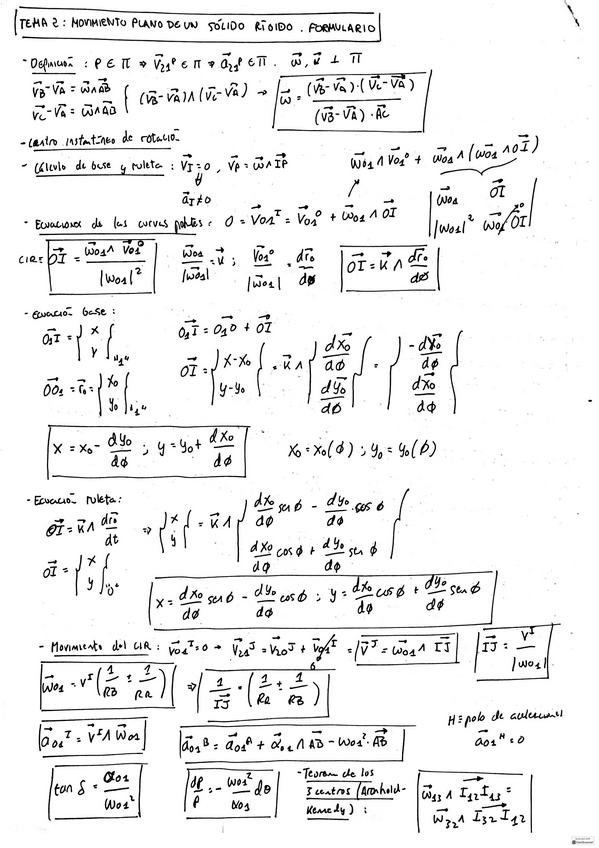 TEMA 2: MOVIMIENTO PLANO DE UN SÓLIDO RÍGIDO. FORMULARIO
- Definición: P ∈ Π ⇒ V₂₁ᴾ ∈ Π ⇒ a₂₁ᴾ ∈ Π. ω, k ⊥ Π
VB - VA = ω∧AB
VC - VA = ω∧AC
(VB-VA)∧(VC-VA) → ω = (VB-VA)·(VC-VA) / (VB-VA)·AC
- Centro instantáneo de rotación
- Cálculo de base y ruleta: VI = 0, VP = ω∧IP
aI ≠ 0
ω01∧V01⁰ + ω01∧(ω01∧OI)
ω01 OI
|ω01|² ω01·OI 0
- Ecuaciones de las curvas polares: 0 = V01ᴵ = V01⁰ + ω01∧OI
CIR≡ OI = ω01∧V01⁰ / |ω01|² ω01/|ω01| = k ; V01⁰/|ω01| = dr0/dϕ OI = k∧dr0/dϕ
- Ecuación base:
O1I = {x y}"1" O1I = O1O + OI
OO1 = r0 = {x0 y0}"1" OI = {x-x0 y-y0} = k∧{dx0/dϕ dy0/dϕ} = {-dx0/dϕ dx0/dϕ}
x = x0 - dy0/dϕ ; y = y0 + dx0/dϕ x0 = x0(ϕ) ; y0 = y0(ϕ)
- Ecuación ruleta:
OI = k∧dr0/dt ⇒ {x y} = k∧{dx0/dϕ sen ϕ - dy0/dϕ·cos ϕ dx0/dϕ cos ϕ + dy0/dϕ sen ϕ
OI = {x y}"0"
x = dx0/dϕ sen ϕ - dy0/dϕ cos ϕ ; y = dx0/dϕ cos ϕ + dy0/dϕ sen ϕ
- Movimiento del CIR: V01ᴵ = 0 → V21ᴶ = V20ᴶ + V01ᴵ 0 = Vᴶ = ω01∧IJ IJ = Vᴵ/|ω01|
ω01 = Vᴵ(1/RB ± 1/RR) ⇒ 1/IJ = (1/RR ± 1/RB)
H ≡ polo de aceleraciones
a01ᴴ = 0
a01ᴵ = Vᴵ∧ω01 a01ᴮ = a01ᴬ + α01∧AB - ω01²·AB
tan δ = α01/ω01² dρ/ρ = - ω01²/α01 dθ
- Teorema de los
3 centros (Aronhold-
Kennedy):
ω13∧I12I13 =
ω32∧I32I12